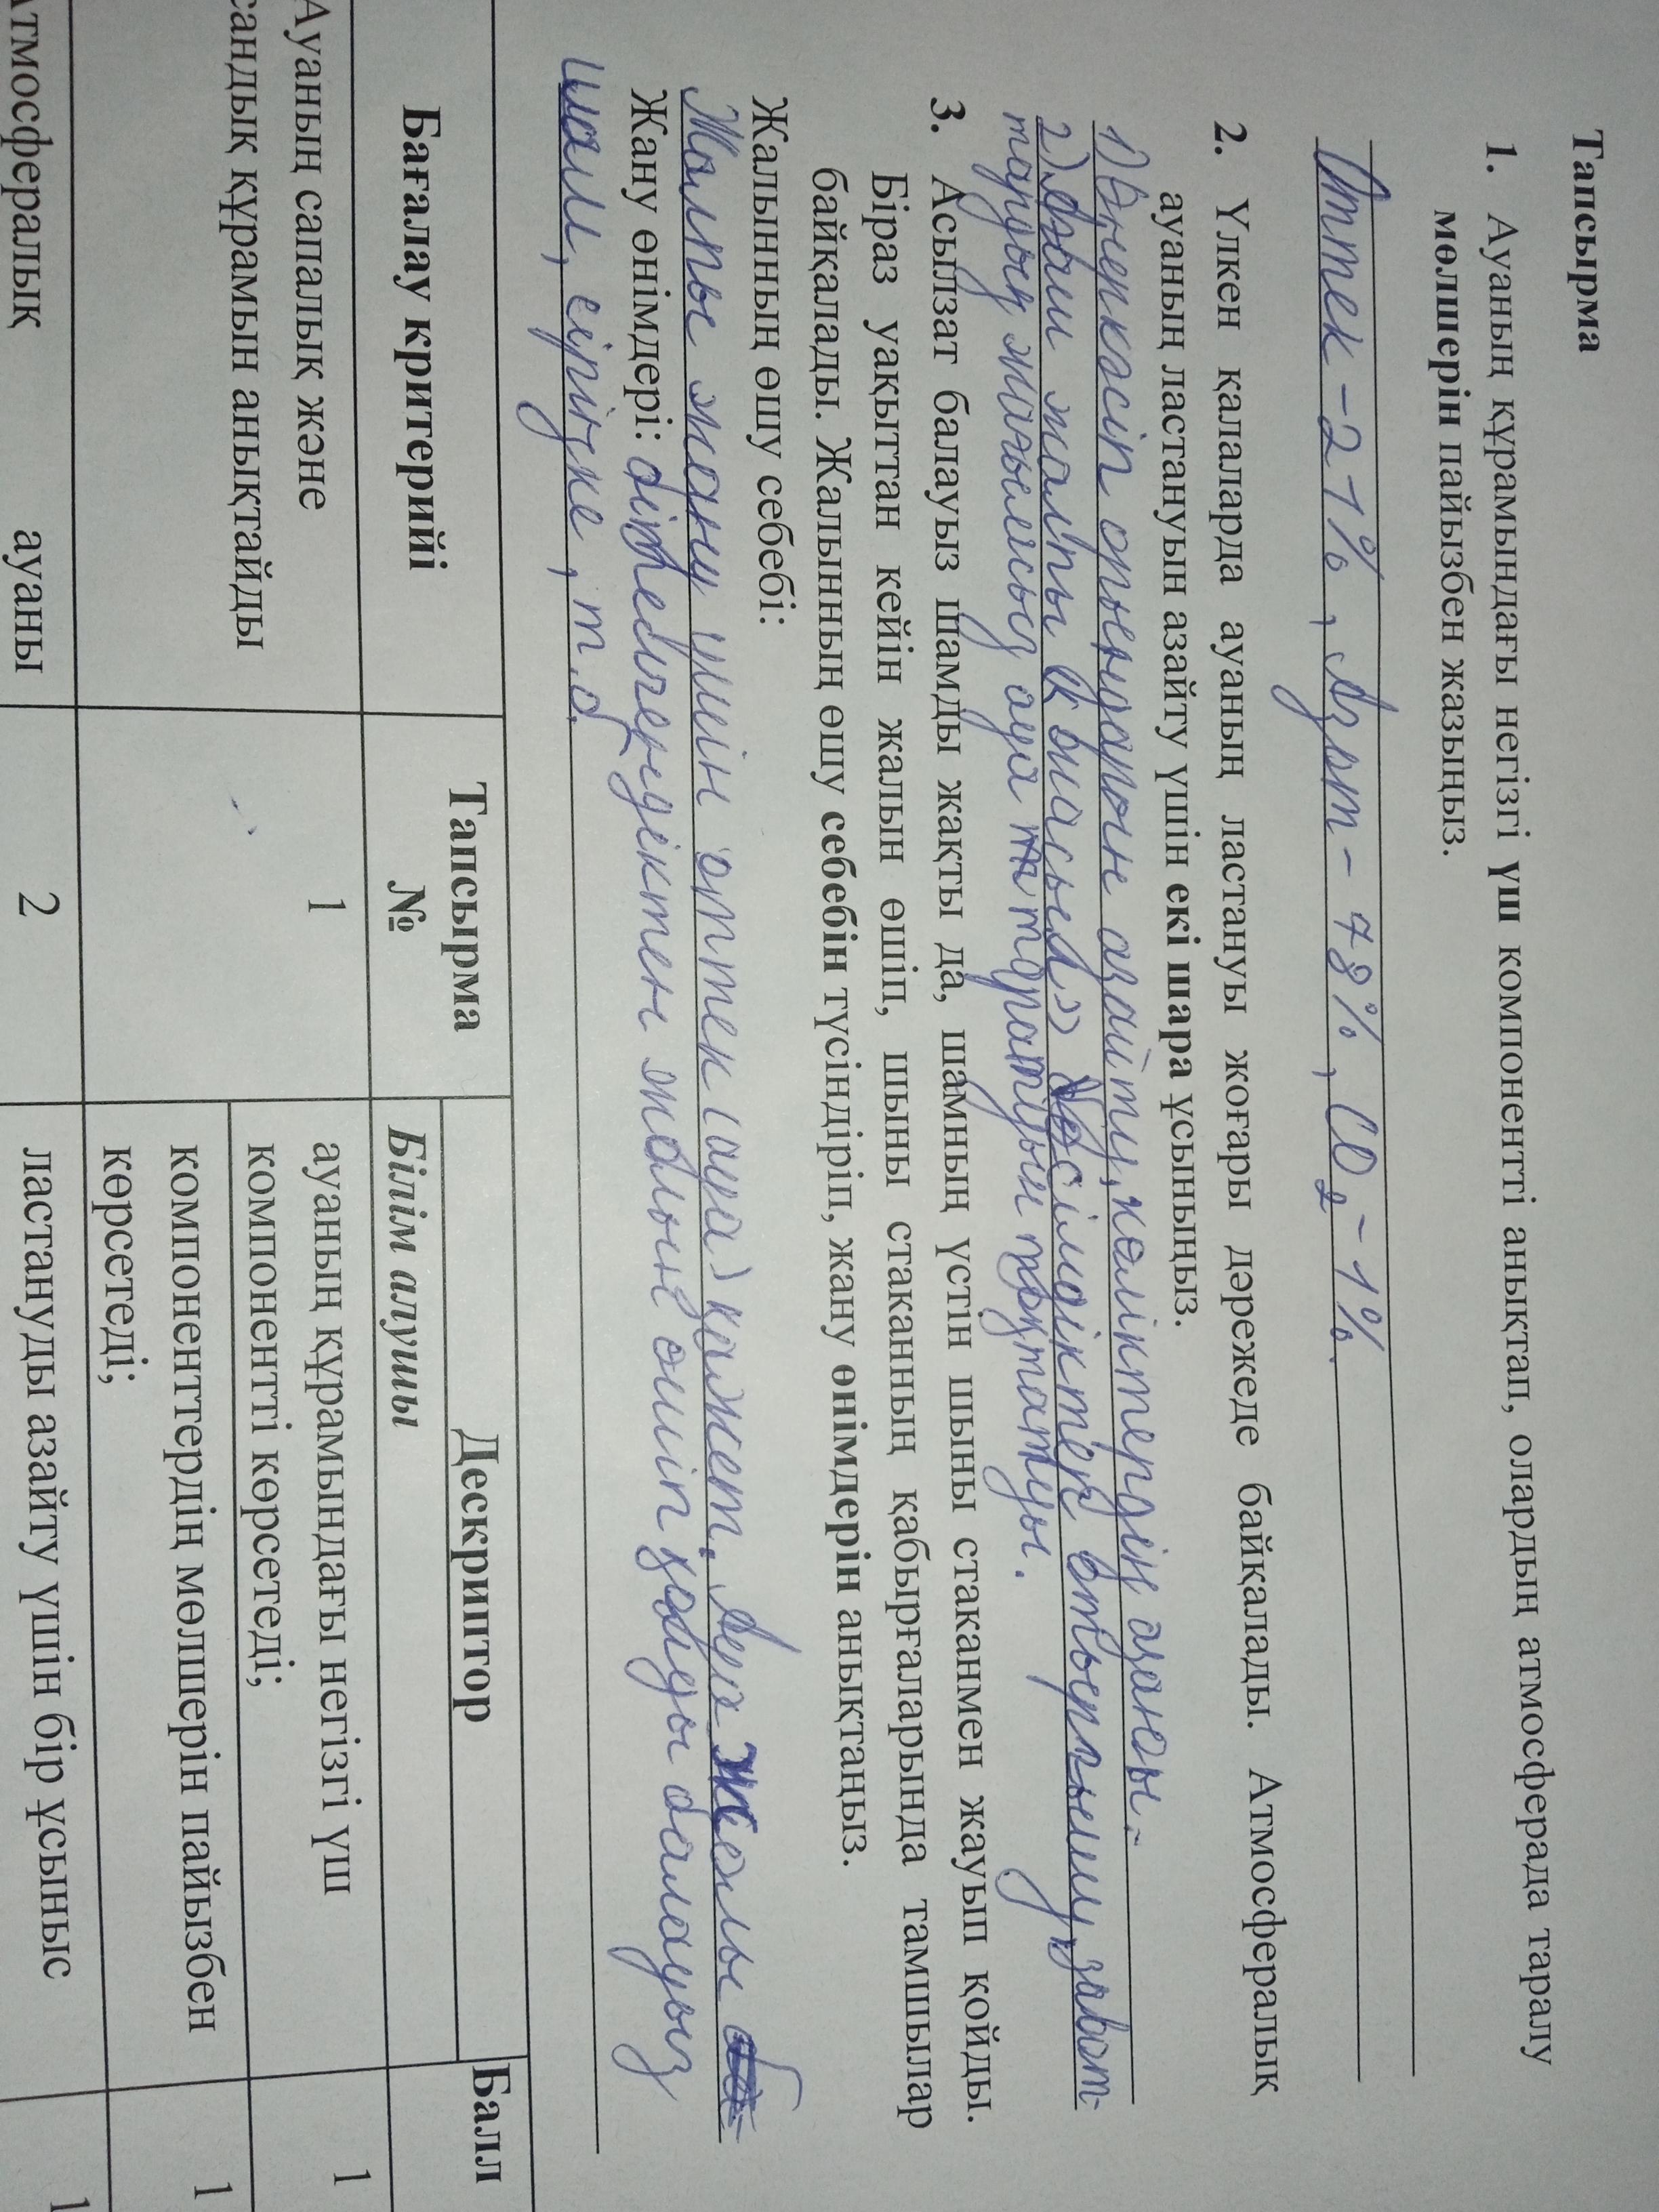 Тапсырма
1. Ауаның құрамындағы негізгі үш компонентті анықтап, олардың атмосферада таралу
мөлшерін пайызбен жазыңыз.
Оттек-21%, Азот-78%, CO2-1%.
2. Үлкен қалаларда ауаның ластануы жоғары дәрежеде байқалады. Атмосфералық
ауаның ластануын азайту үшін екі шара ұсыныңыз.
1) Өнеркәсіп орындарын азайту, көліктердің азаюы.
2) орын жалпы өсімдіктер отырғызу, завот-
тардың жағымсыз ауа таратуын тоқтатуы.
3. Асылзат балауыз шамды жақты да, шамның үстін шыны стаканмен жауып қойды.
Біраз уақыттан кейін жалын өшіп, шыны стаканның қабырғаларында тамшылар
байқалады. Жалынның өшу себебін түсіндіріп, жану өнімдерін анықтаңыз.
Жалынның өшу себебі:
Жалпы жану үшін оттек (ауа) қажет. Ауа жолы
Жану өнімдері: бітелгендіктен жалын өшіп қалады балауыз
шам, сіріңке, т.б.
Бағалау критерийі
Тапсырма
№
Дескриптор
Балл
Білім алушы
Ауаның сапалық және
сандық құрамын анықтайды
1
ауаның құрамындағы негізгі үш
компонентті көрсетеді;
1
компоненттердің мөлшерін пайызбен
көрсетеді;
1
Атмосфералық ауаны
2
ластануды азайту үшін бір ұсыныс
1